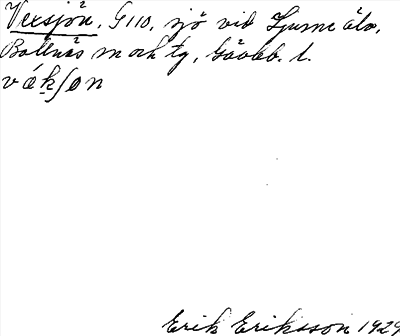 Vexsjön, G110, sjö vid Ljusne älv,
Bollnäs sn och tg, Gävleb. l.
vǽkʃon
Erik Eriksson 1929